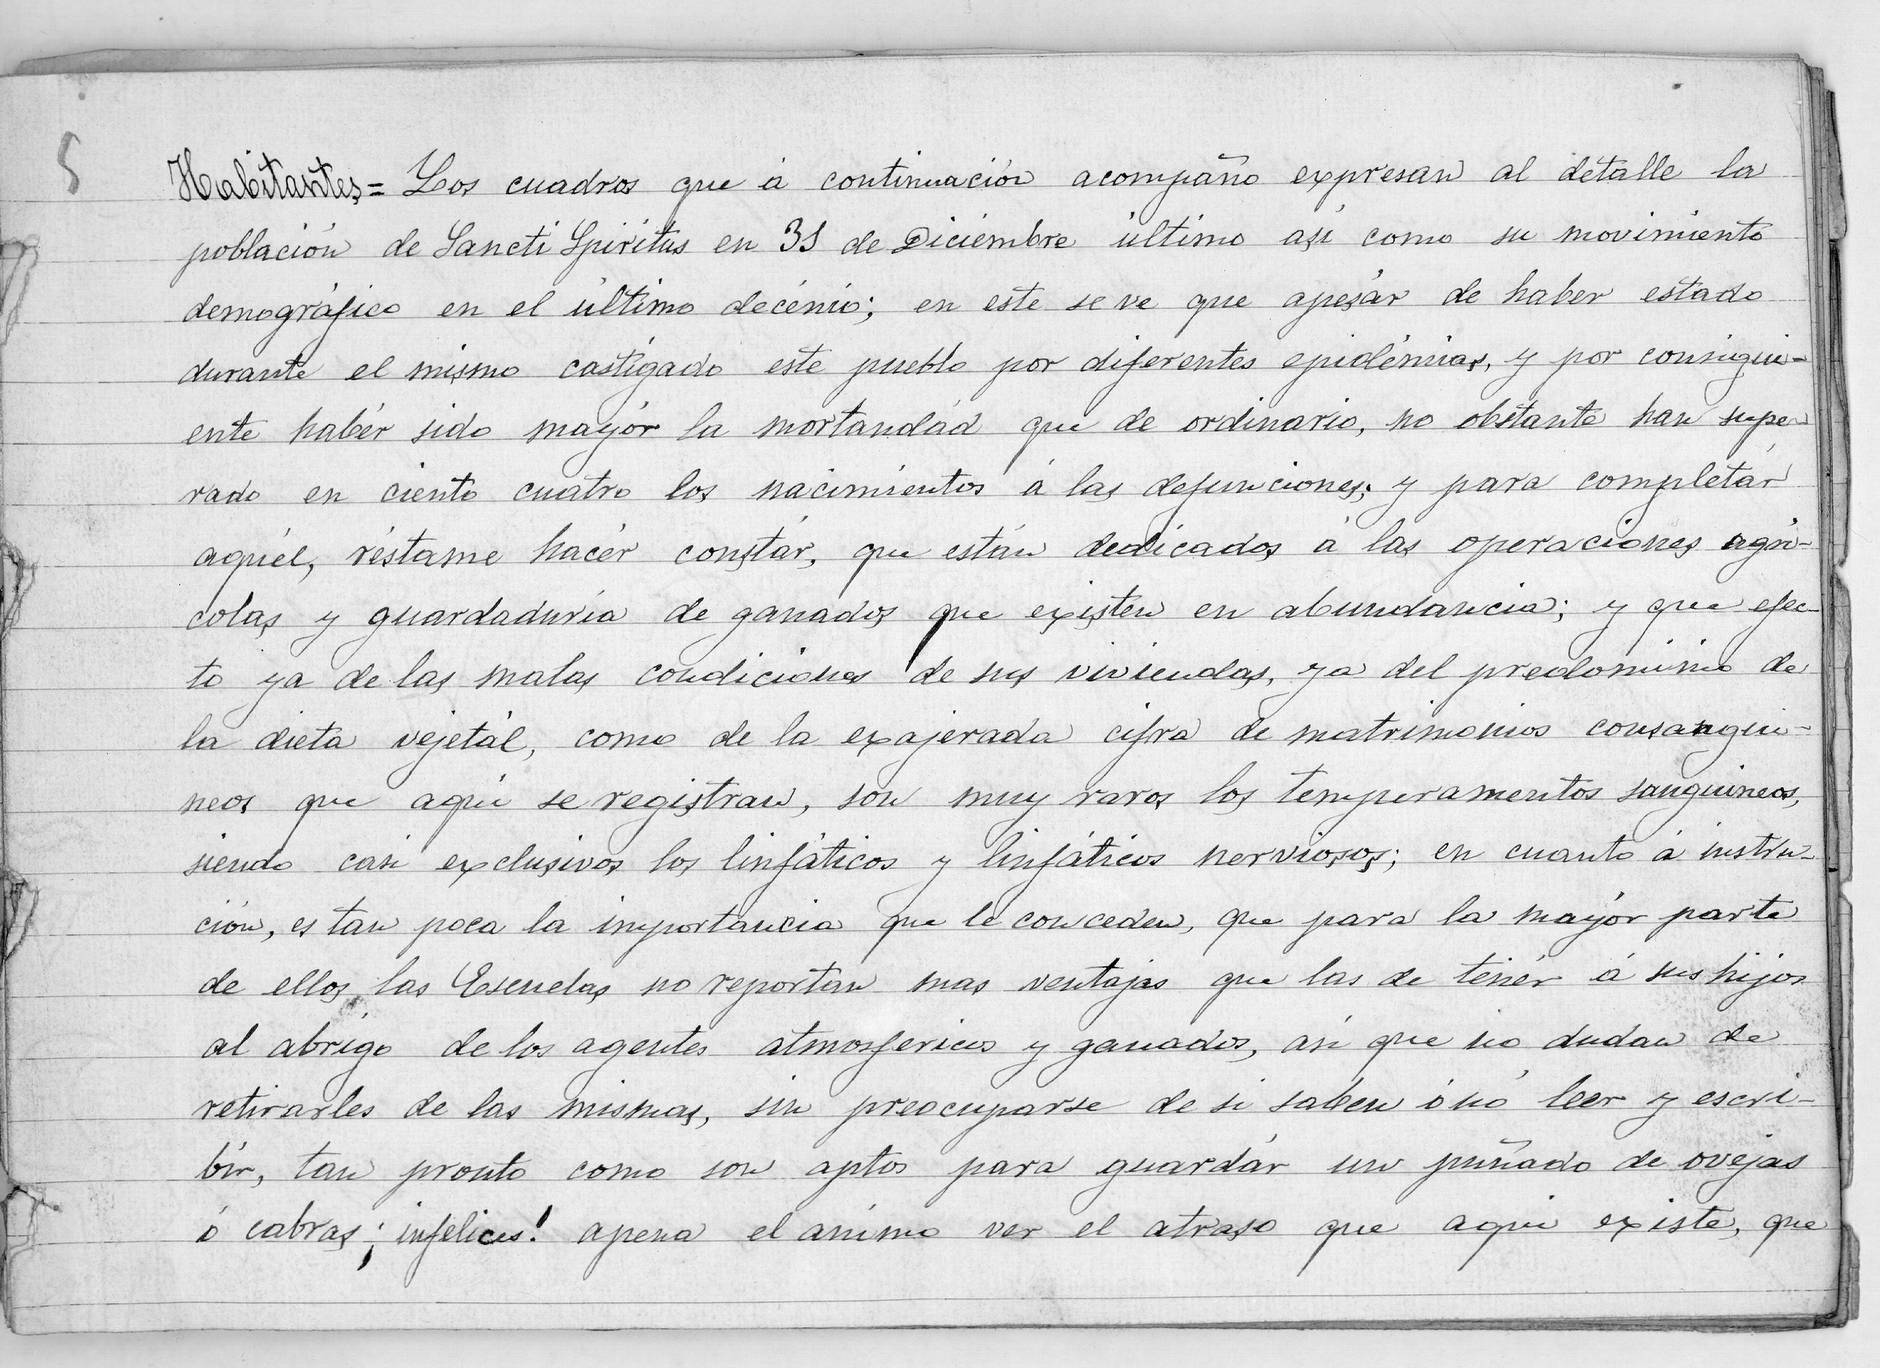 5
Habitantes = Los cuadros que á continuación acompaño expresan al detalle la
población de Sancti Spiritus en 31 de Diciembre último así como su movimiento
demográfico en el último decénio; en este se ve que apesár de haber estado
durante el mismo castigado este pueblo por diferentes epidémias, y por consigui-
ente habér sido mayór la mortandád que de ordinario, no obstante han supe-
rado en ciento cuatro los nacimientos á las defunciones; y para completár
aquél, réstame hacér constár, que están dedicados á las operaciones agrí-
colas y guardaduría de ganados que existen en abundancia; y que efec-
to ya de las malas condiciones de sus viviendas, ya del predominio de
la dieta vejetál, como de la exajerada cifra de matrimonios consangui-
neos que aquí se registran, son muy raros los temperamentos sanguineos,
siendo casi exclusivos los linfáticos y linfáticos nerviosos; en cuanto á instru-
ción, es tan poca la importancia que le conceden, que para la mayór parte
de ellos las Escuelas no reportan mas ventajas que las de tenér á sus hijos
al abrigo de los agentes atmosfericos y ganados, así que no dudan de
retirarles de las mismas, sin preocuparse de si saben ó nó leer y escri-
bír, tan pronto como son aptos para guardár un puñado de ovejas
ó cabras; ¡infelices! apena el animo ver el atraso que aqui existe, que